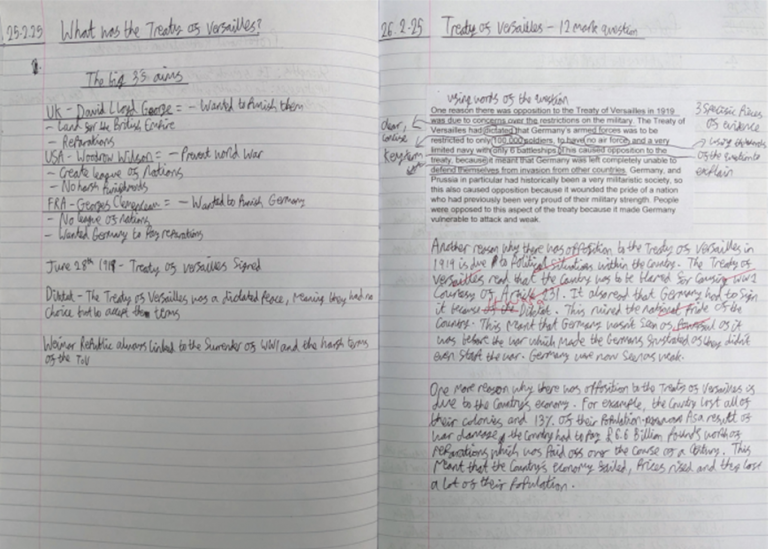 25.2.25 What was the Treaty of Versailles?
The big 3's aims
UK - David Lloyd George = - Wanted to Punish them
- Land for the British Empire
- Reparations
USA - Woodrow Wilson = - Prevent world War
- Create league of Nations
- No harsh Punishments
FRA - Georges = - Wanted to Punish Germany
- No league of nations
- Wanted Germany to Pay reparations
June 28th 1919 - Treaty of versailles Signed
Diktat - The Treaty of Versailles was a dictated Peace, Meaning they had no
choice but to accept the terms
Weimar Republic always linked to the Surrender of WWI and the harsh terms
of the ToV
26.2.25 Treaty of Versailles - 12 mark question
using words of the question
One reason there was opposition to the Treaty of Versailles in 1919
was due to concerns over the restrictions on the military. The Treaty of
Versailles had dictated that Germany's armed forces was to be
restricted to only 100,000 soldiers, to have no air force, and a very
limited navy with only 6 battleships. This caused opposition to the
treaty, because it meant that Germany was left completely unable to
defend themselves from invasion from other countries. Germany, and
Prussia in particular had historically been a very militaristic society, so
this also caused opposition because it wounded the pride of a nation
who had previously been very proud of their military strength. People
were opposed to this aspect of the treaty because it made Germany
vulnerable to attack and weak.
clear,
concise
3 Specific Pieces
of evidence
using
of the question to
explain
Another reason why there was opposition to the Treaty of Versailles in
1919 is due to Political Situations within the Country. The Treaty of
Versailles read that the Country was to be blamed for Causing WW1
Courtesy of Article 231. It also read that Germany had to Sign
it because of the Diktat. This ruined the national Pride of the
Country. This Meant that Germany wasn't Seen as Powerful as it
was before the war which Made the Germans frustrated as they didn't
even Start the war. Germany was now Seen as weak.
One more reason why there was opposition to the Treaty of Versailles is
due to the Country's economy. For example, the Country lost all of
their colonies and 13% of their Population. As a result of
war damage, the Country had to Pay £6.6 Billion Pounds worth of
reparations which was Paid off over the Course of a Century. This
Meant that the Country's economy failed, Prices rised and they lost
a lot of their Population.